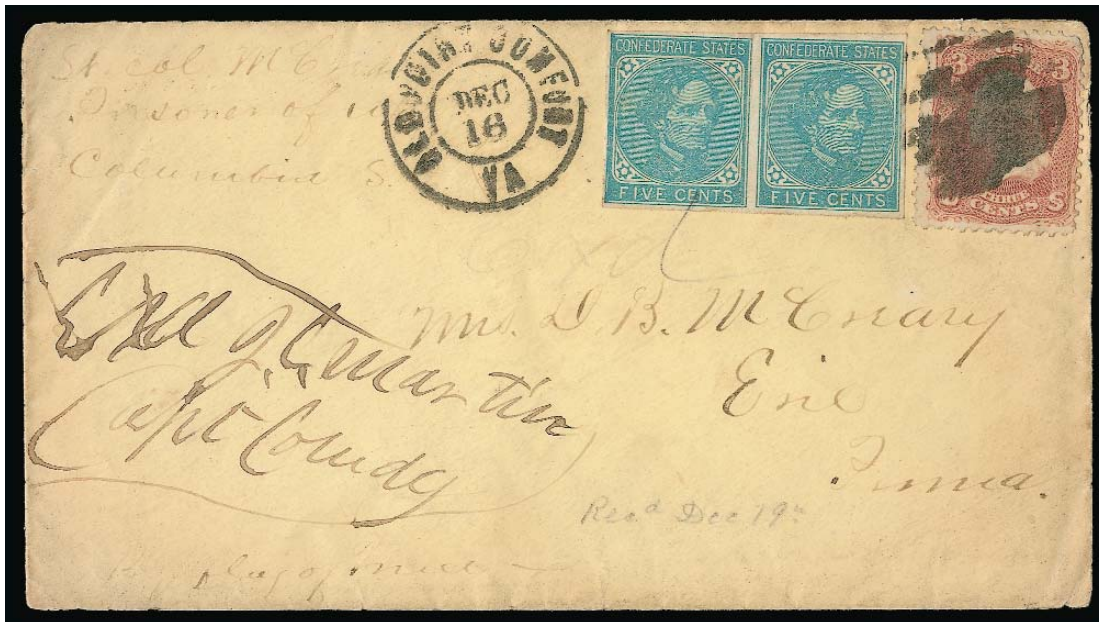 Lt. Col. McC
Prisoner of
Columbia S.
OLD POINT COMFORT
DEC
16
VA
CONFEDERATE STATES
FIVE CENTS
CONFEDERATE STATES
FIVE CENTS
3 U.S. 3
CENTS
Exd J. C. Martin
Capt Comdg
Mrs. D. B. McCreary
Erie
Penna.
Recd Dec 19th
flag of truce